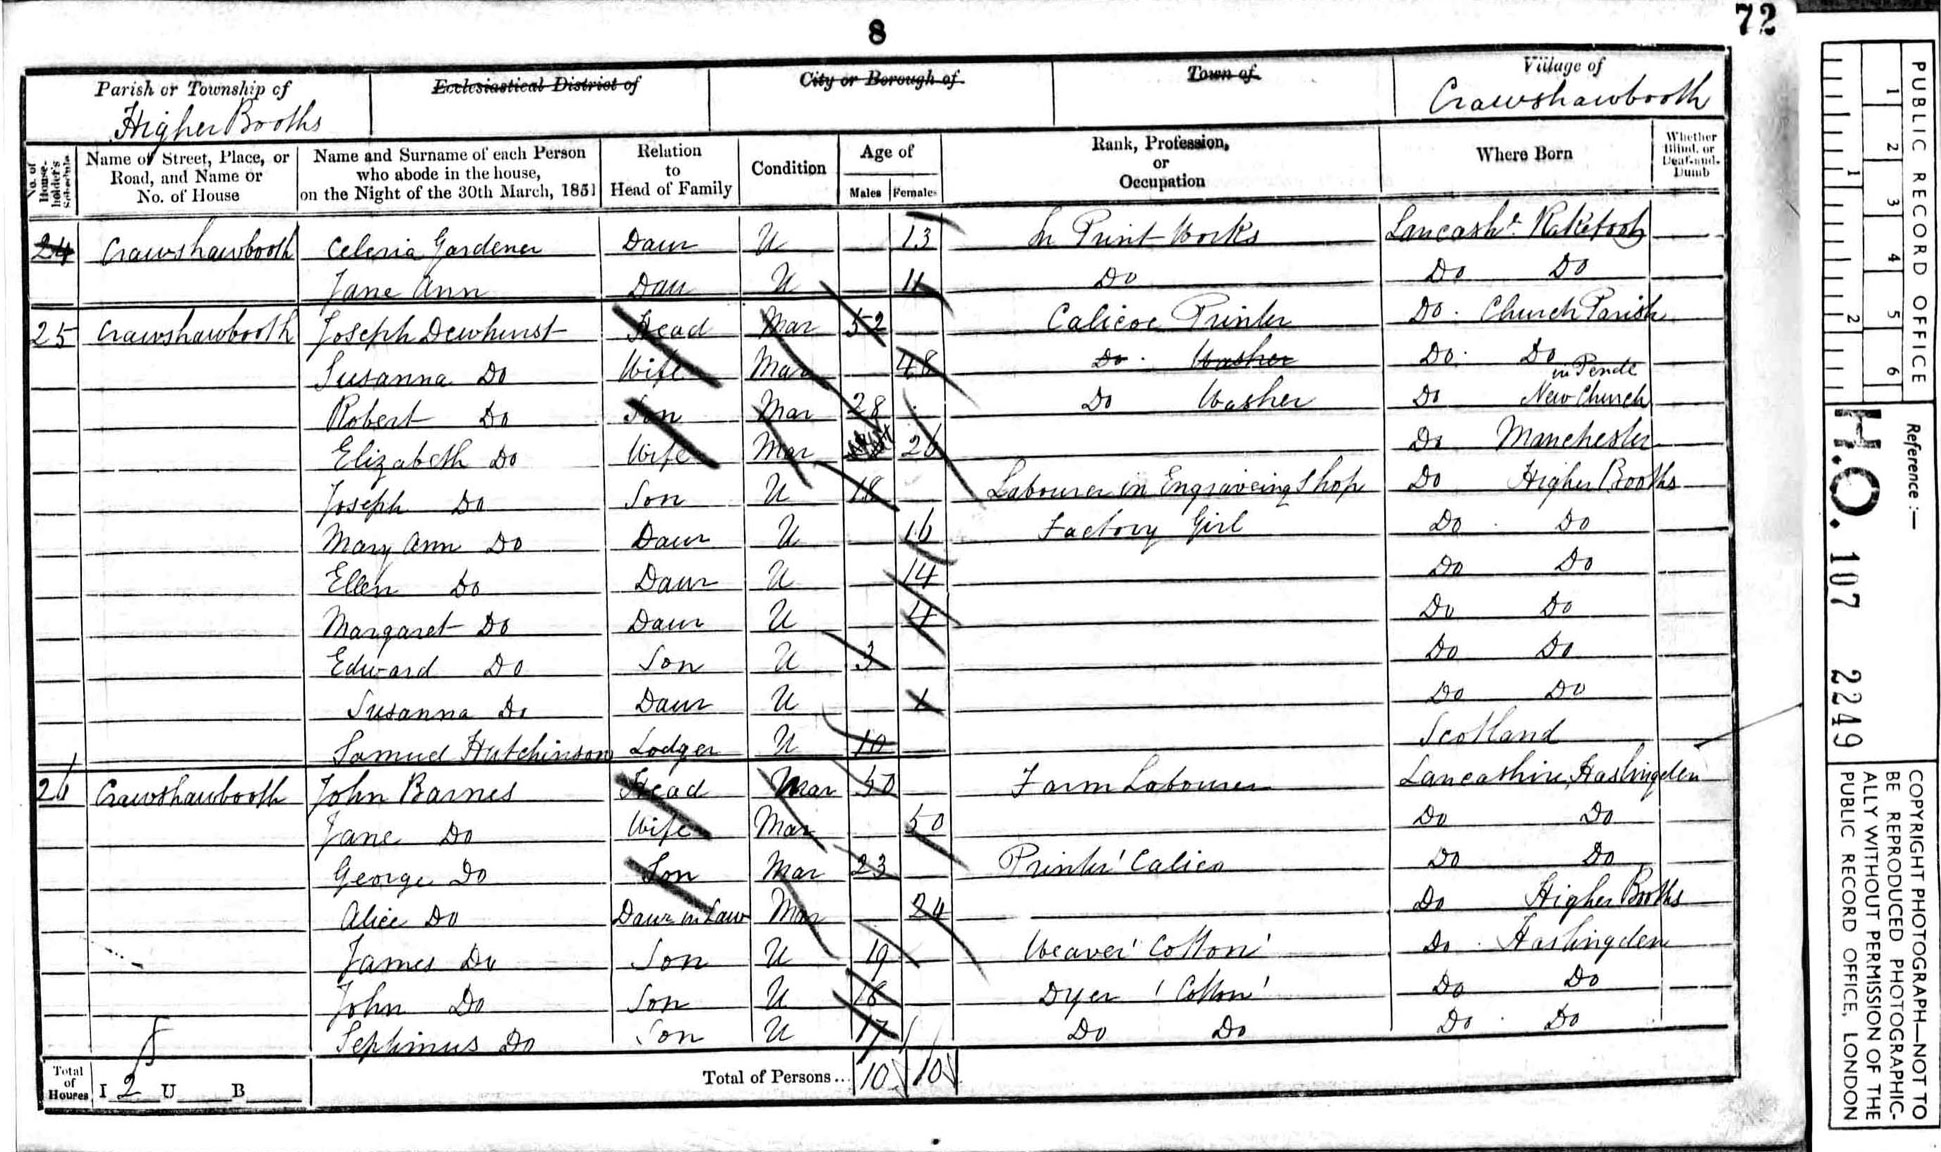 8
72
Parish or Township of Ecclesiastical District of City or Borough of Town of Village of
Higher Booths Crawshawbooth
No. of House-holder's Schedule
Name of Street, Place, or Road, and Name or No. of House
Name and Surname of each Person who abode in the house, on the Night of the 30th March, 1851
Relation to Head of Family
Condition
Age of
Males Females
Rank, Profession, or Occupation
Where Born
Whether Blind, or Deaf-and-Dumb
24 Crawshawbooth Celeria Gardener Daur U 13 In Print Works Lancashr
Jane Ann Dau U 11 Do Do Do
25 Crawshawbooth Joseph Dewhurst Head Mar 52 Calicoe Printer Do Church Parish
Susanna Do Wife Mar 48 Do Washer Do Do
Robert Do Son Mar 28 Do Washer Do New Church in Pendle
Elizabeth Do Wife Mar 26 Do Manchester
Joseph Do Son U 18 Labourer in Engraveing Shop Do Higher Booths
Mary Ann Do Daur U 16 Factory Girl Do Do
Ellen Do Daur U 14 Do Do
Margaret Do Daur U 4 Do Do
Edward Do Son U 3 Do Do
Susanna Do Daur U 1 Do Do
Samuel Hutchinson Lodger U 10 Scotland
26 Crawshawbooth John Barnes Head Mar 50 Farm Labourer Lancashire, Haslingden
Jane Do Wife Mar 50 Do Do
George Do Son Mar 23 Printer 'Calico Do Do
Alice Do Daur in Law Mar 24 Do Higher Booths
James Do Son U 19 Weaver 'Cotton' Do Haslingden
John Do Son U 18 Dyer 'Cotton' Do Do
Septimus Do Son U 17 Do Do Do Do
Total of Houses I 2 U B Total of Persons... 10 10
PUBLIC RECORD OFFICE
1 2 3 4 5 6
1 2
Reference:—
H.O. 107 2249
COPYRIGHT PHOTOGRAPH—NOT TO
BE REPRODUCED PHOTOGRAPHIC-
ALLY WITHOUT PERMISSION OF THE
PUBLIC RECORD OFFICE, LONDON